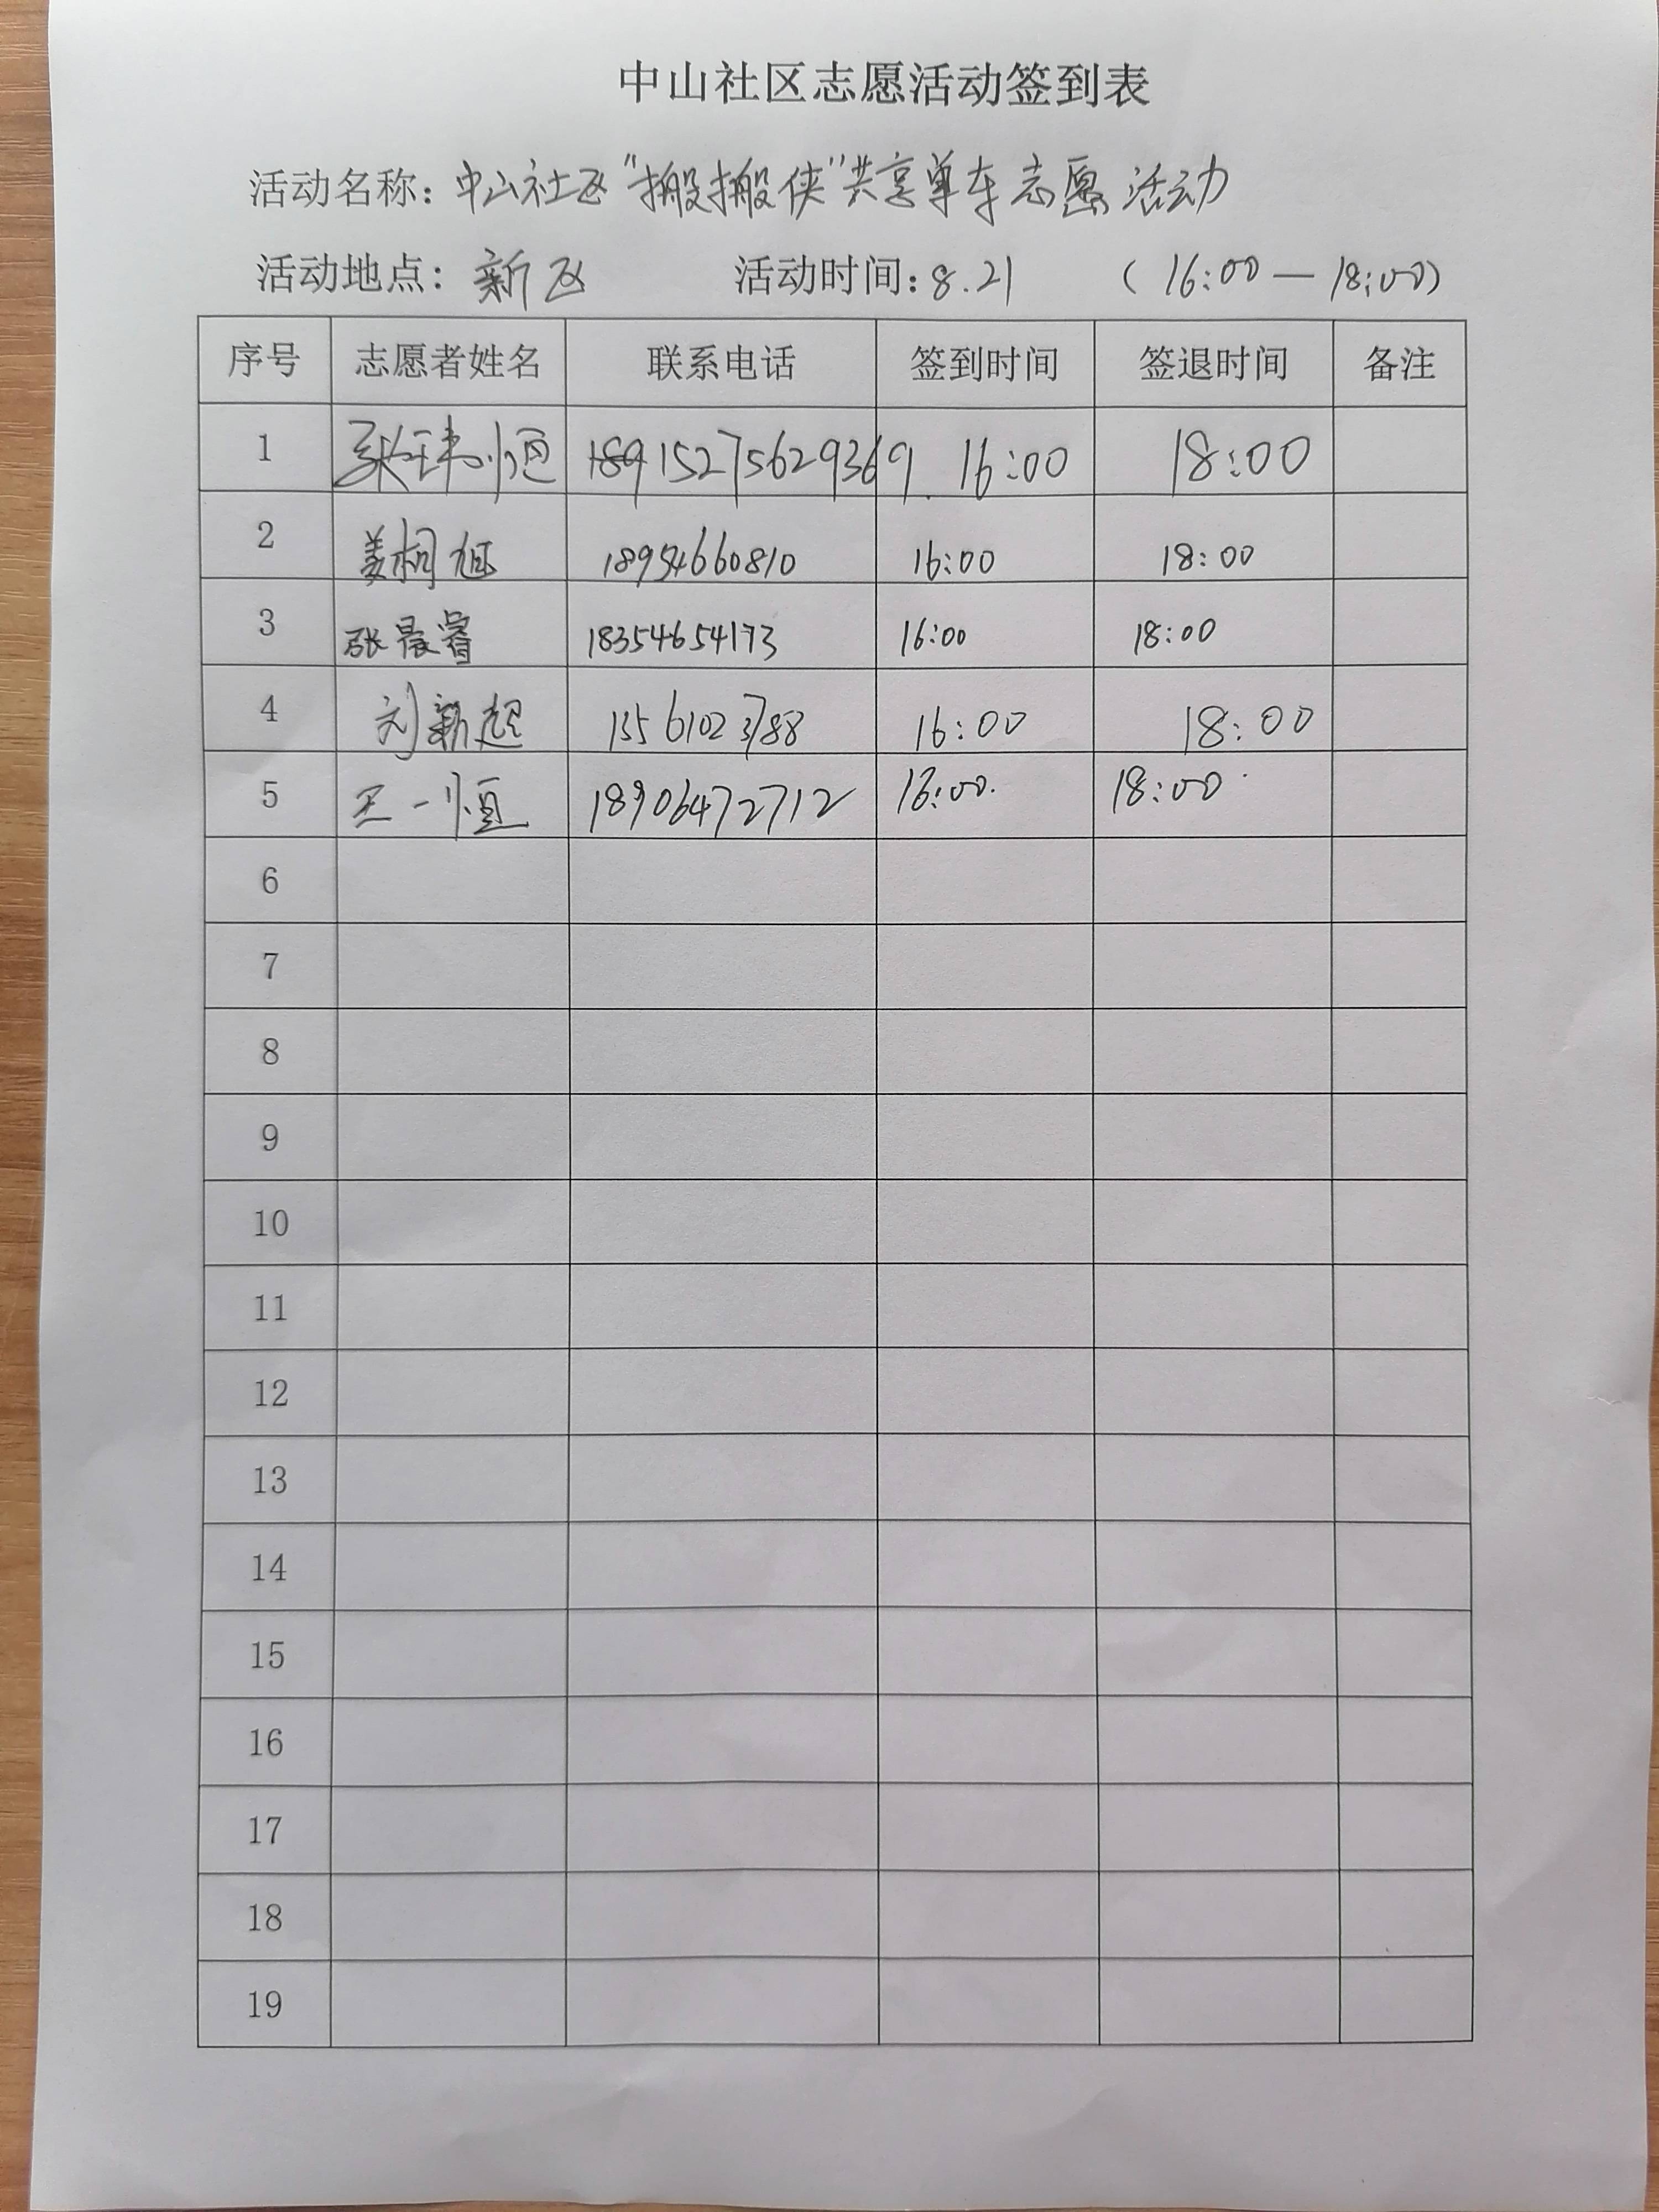 中山社区志愿活动签到表
活动名称：中山社区"搬搬侠"共享单车志愿活动
活动地点：新区 活动时间：8.21 （16:00—18:00）
序号 志愿者姓名 联系电话 签到时间 签退时间 备注
1 16:00 18:00
2 姜桐旭 18954660810 16:00 18:00
3 张晨睿 18354654173 16:00 18:00
4 刘新超 16:00 18:00
5 王一恒 18906472712 16:00. 18:00
6
7
8
9
10
11
12
13
14
15
16
17
18
19